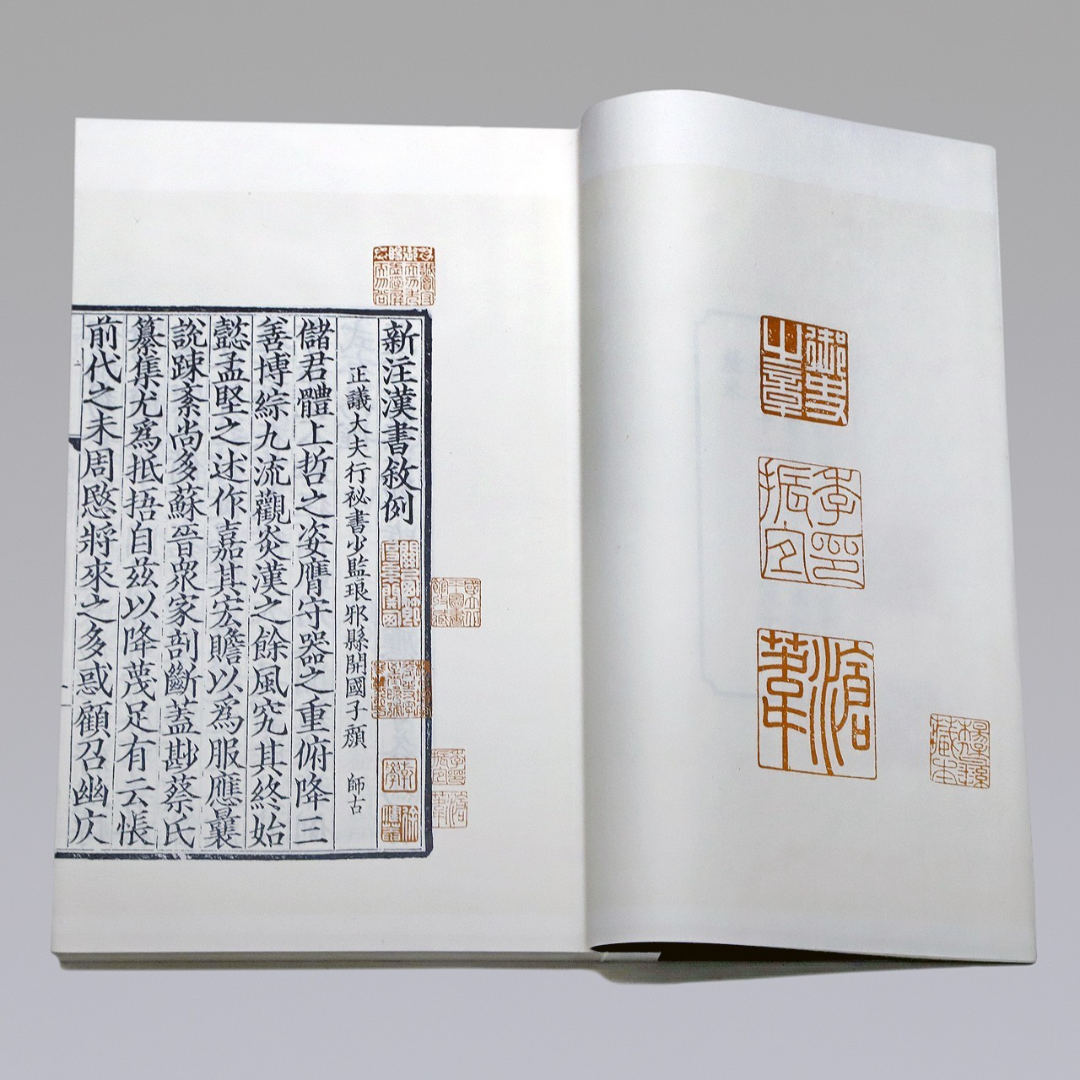 御史之章
季印振宜
滄葦
新注漢書敘例
正議大夫行祕書少監琅邪縣開國子顏 師古
儲君體上哲之姿膺守器之重俯降三
善博綜九流觀炎漢之餘風究其終始
懿孟堅之述作嘉其宏贍以爲服應曩
說踈紊尚多蘇晉衆家剖斷蓋尠蔡氏
纂集尤爲抵捂自兹以降蔑足有云悵
前代之未周愍將來之多惑顧召幽庂
季印振宜
滄葦